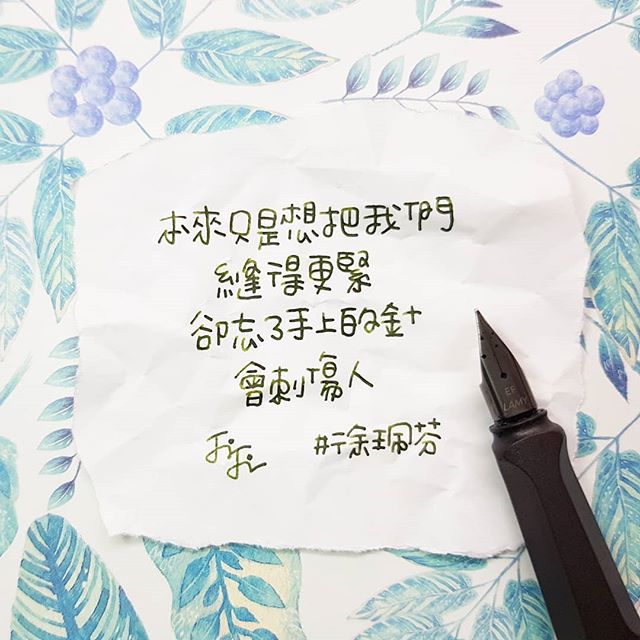 本來只是想把我們
縫得更緊
卻忘了手上的針
會刺傷人
JiJi #徐珮芬
EF
LAMY